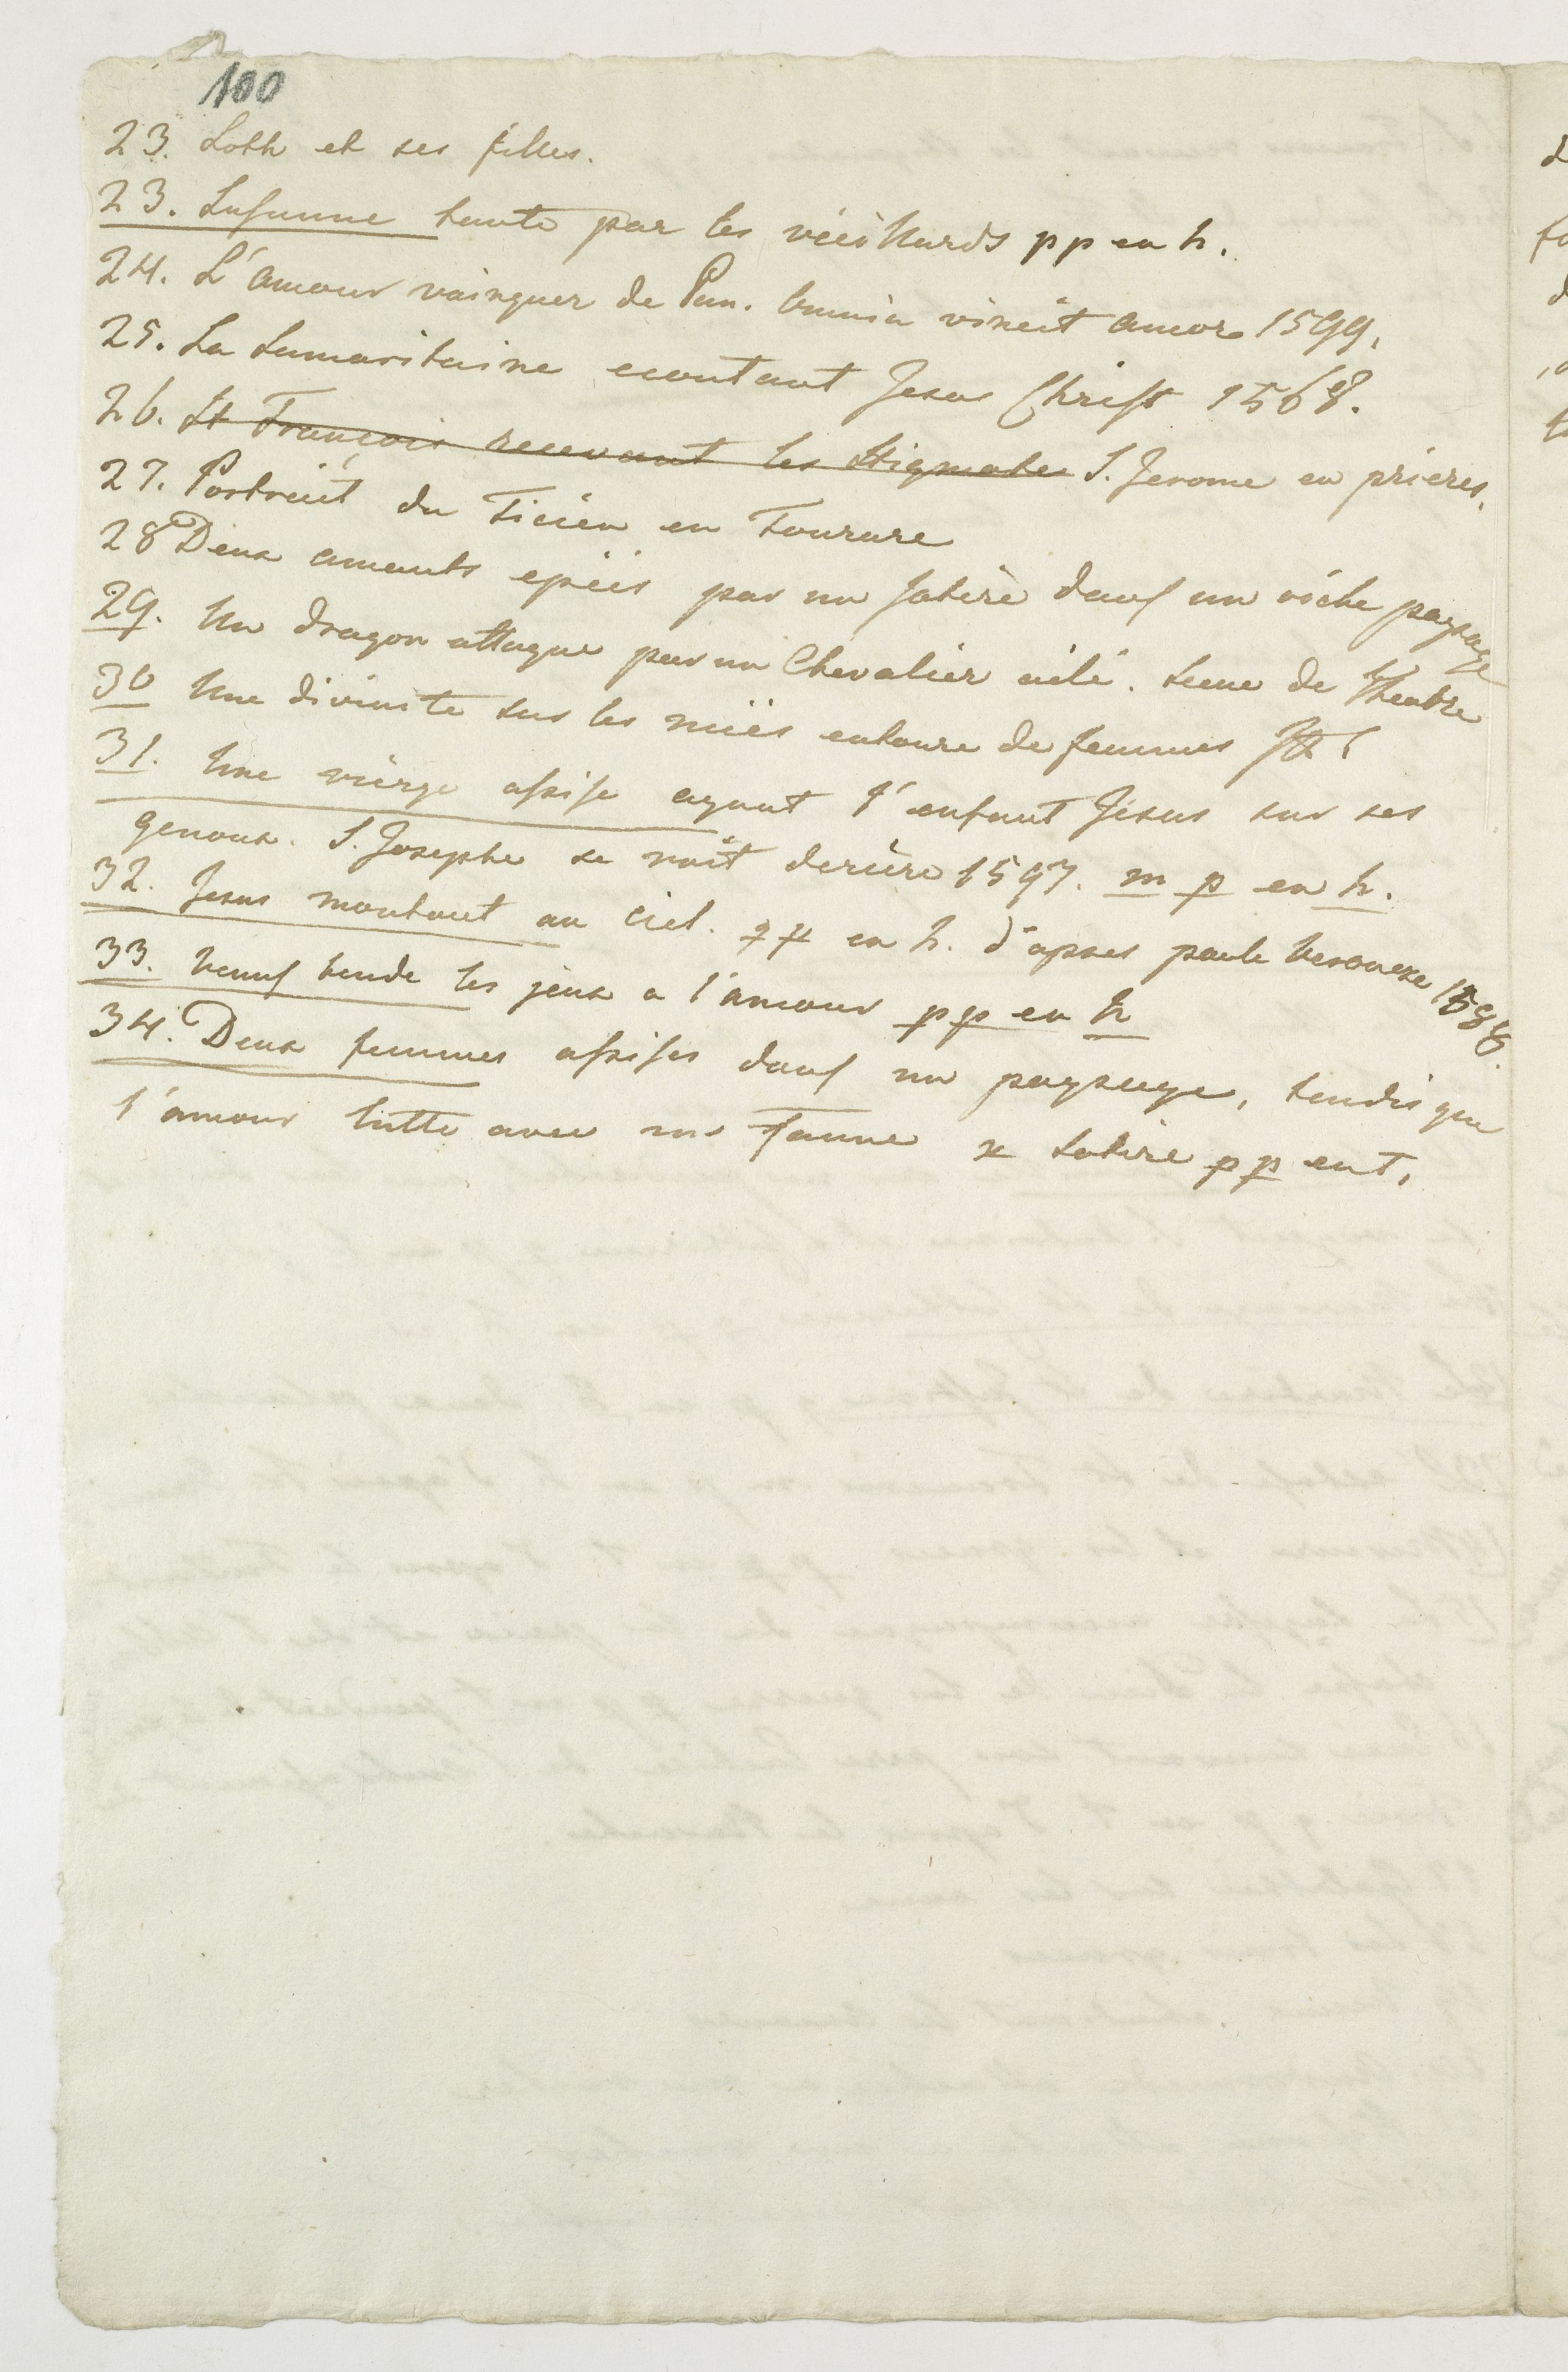 100
23. Loth et ses filles.
23. Susanne tente par les viéillards pp en h.
24. L'amour vainquer de Pan. Omnia vincit amor 1599.
25. La Samaritaine ecoutant Jesus Christ 1568.
26. St François recevant les Stigmates S. Jerome en priéres.
27. Portrait du Ticien en Fourure
28 Deux amants epiéis par un satire dans un riche paysage
29. Un dragon attaque par un Chevalier ailé. scene de Theatre
30 Une divinite sur les nuiés entoure de femmes
31. Une vierge assise ayant l'enfant Jesus sur ses
genoux. S. Josephe se voit deriére 1597. m p en h.
32. Jesus montant au Ciel. en h. d'apres paule Veronese
33. Venus bende les jeux a l'amour pp en h
34. Deux femmes assises dans un paysage, tendis que
l'amour lutte avec un Faune satire pp en t.